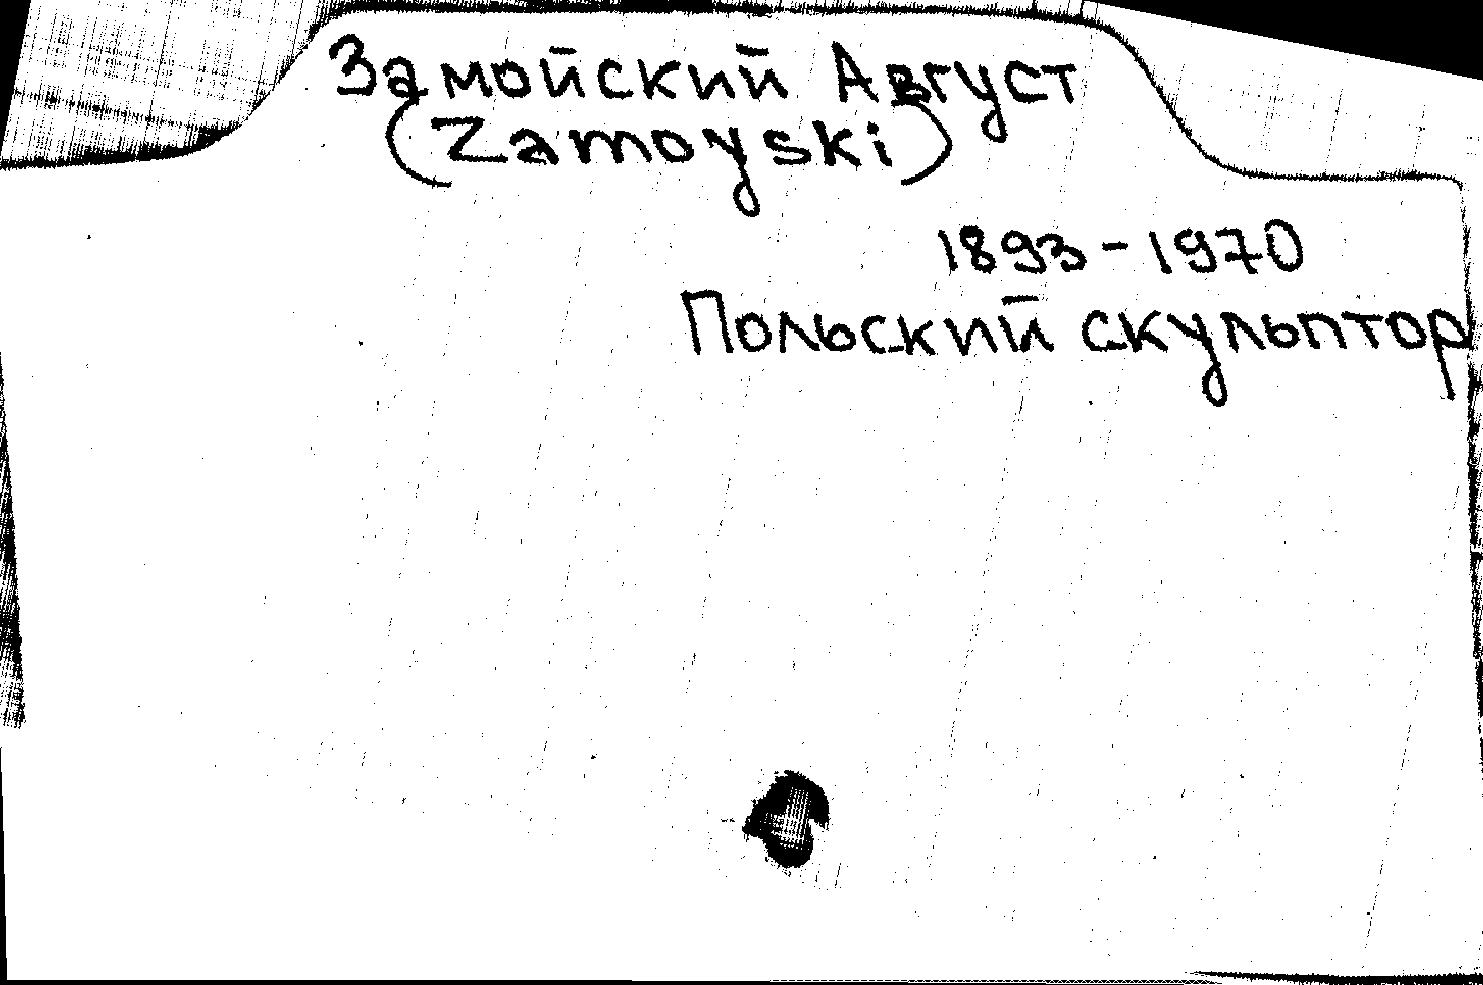 Замойский Август
(Zamoyski)
1893-1970
Польский скульптор